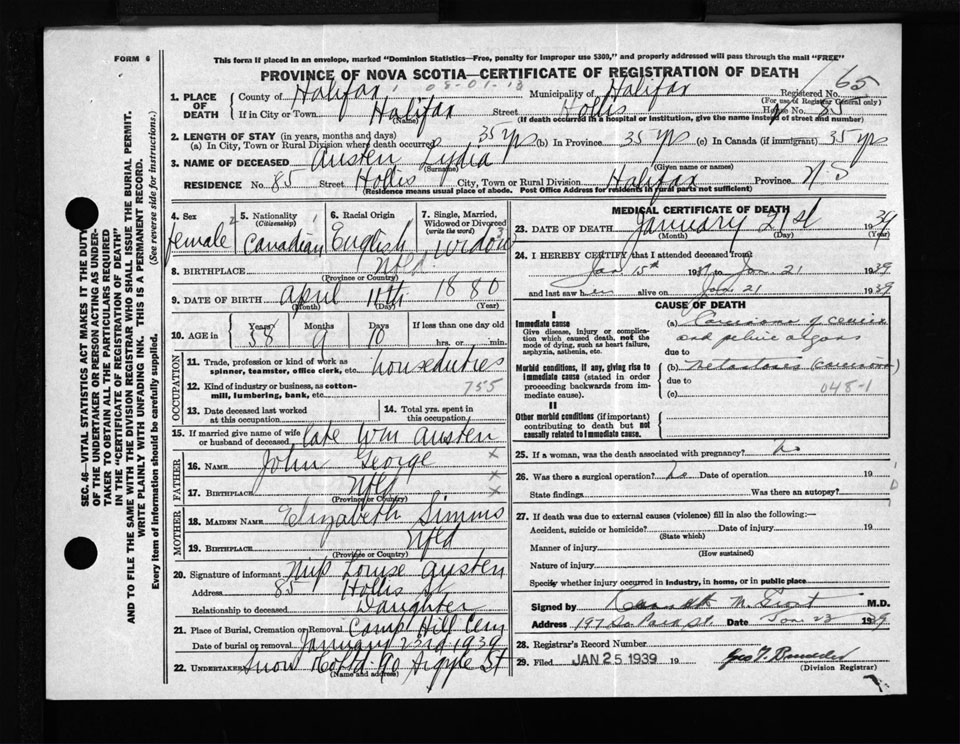 FORM 6
This form if placed in an envelope, marked "Dominion Statistics—Free, penalty for improper use $300," and properly addressed will pass through the mail "FREE"
PROVINCE OF NOVA SCOTIA—CERTIFICATE OF REGISTRATION OF DEATH
1. PLACE OF DEATH
County of Halifax Municipality of Halifax Registered No. 65
(For use of Registrar General only)
If in City or Town Halifax Street Hollis House No. 85
(Name) (If death occurred in a hospital or institution, give the name instead of street and number)
2. LENGTH OF STAY (in years, months and days)
(a) In City, Town or Rural Division where death occurred 35 yrs (b) In Province 35 yrs (c) In Canada (if immigrant) 35 yrs
3. NAME OF DECEASED Austen Lydia
(Surname) (Given name or names)
RESIDENCE No. 85 Street Hollis City, Town or Rural Division Halifax Province N.S
(Residence means usual place of abode. Post Office Address for residents in rural parts not sufficient)
4. Sex female 2
5. Nationality (Citizenship) Canadian 1
6. Racial Origin English 1
7. Single, Married, Widowed or Divorced (write the word) Widow 3
8. BIRTHPLACE Nfld
(Province or Country)
9. DATE OF BIRTH April 11th 1880
(Month) (Day) (Year)
10. AGE in Years Months Days If less than one day old
58 9 10 hrs. or min.
OCCUPATION
11. Trade, profession or kind of work as spinner, teamster, office clerk, etc. houseduties
12. Kind of industry or business, as cotton-mill, lumbering, bank, etc. 755
13. Date deceased last worked at this occupation
14. Total yrs. spent in this occupation
15. If married give name of wife or husband of deceased late Wm Austen
FATHER
16. NAME John George x
x
17. BIRTHPLACE Nfld x
(Province or Country)
MOTHER
18. MAIDEN NAME Elizabeth Simms
19. BIRTHPLACE Nfld
(Province or Country)
20. Signature of informant Louise Austen
Address 85 Hollis St
Relationship to deceased Daughter
21. Place of Burial, Cremation or Removal Camp Hill Cem
Date of burial or removal January 23rd 1939
22. UNDERTAKER Snow Co Ltd 90 Argyle St
(Name and address)
MEDICAL CERTIFICATE OF DEATH
23. DATE OF DEATH January 21st 1939
(Month) (Day) (Year)
24. I HEREBY CERTIFY that I attended deceased from
Jan 15th 1939 to Jan 21 1939
and last saw her alive on Jan 21 1939
CAUSE OF DEATH
I
Immediate cause
Give disease, injury or complication which caused death, not the mode of dying, such as heart failure, asphyxia, asthenia, etc.
(a) of cervix
and pelvic organs
due to
Morbid conditions, if any, giving rise to immediate cause (stated in order proceeding backwards from immediate cause).
(b)
due to
(c) 048-1
II
Other morbid conditions (if important) contributing to death but not causally related to immediate cause.
25. If a woman, was the death associated with pregnancy? no
26. Was there a surgical operation? no Date of operation 19
State findings Was there an autopsy?
27. If death was due to external causes (violence) fill in also the following:—
Accident, suicide or homicide? Date of injury 19
(State which)
Manner of injury
(How sustained)
Nature of injury
Specify whether injury occurred in industry, in home, or in public place
Signed by Kenneth M. Grant M.D.
Address 197 So Park St. Date Jan 23 1939
28. Registrar's Record Number
29. Filed JAN 25 1939 19
(Division Registrar)
SEC. 46—VITAL STATISTICS ACT MAKES IT THE DUTY OF THE UNDERTAKER OR PERSON ACTING AS UNDERTAKER TO OBTAIN ALL THE PARTICULARS REQUIRED IN THE "CERTIFICATE OF REGISTRATION OF DEATH"
AND TO FILE THE SAME WITH THE DIVISION REGISTRAR WHO SHALL ISSUE THE BURIAL PERMIT.
WRITE PLAINLY WITH UNFADING INK. THIS IS A PERMANENT RECORD.
Every item of information should be carefully supplied. (See reverse side for instructions.)